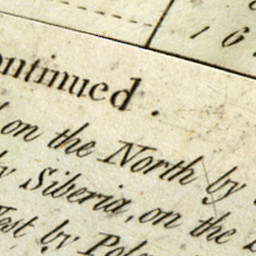 16
ontinued.
on the North by
Siberia, on the
by